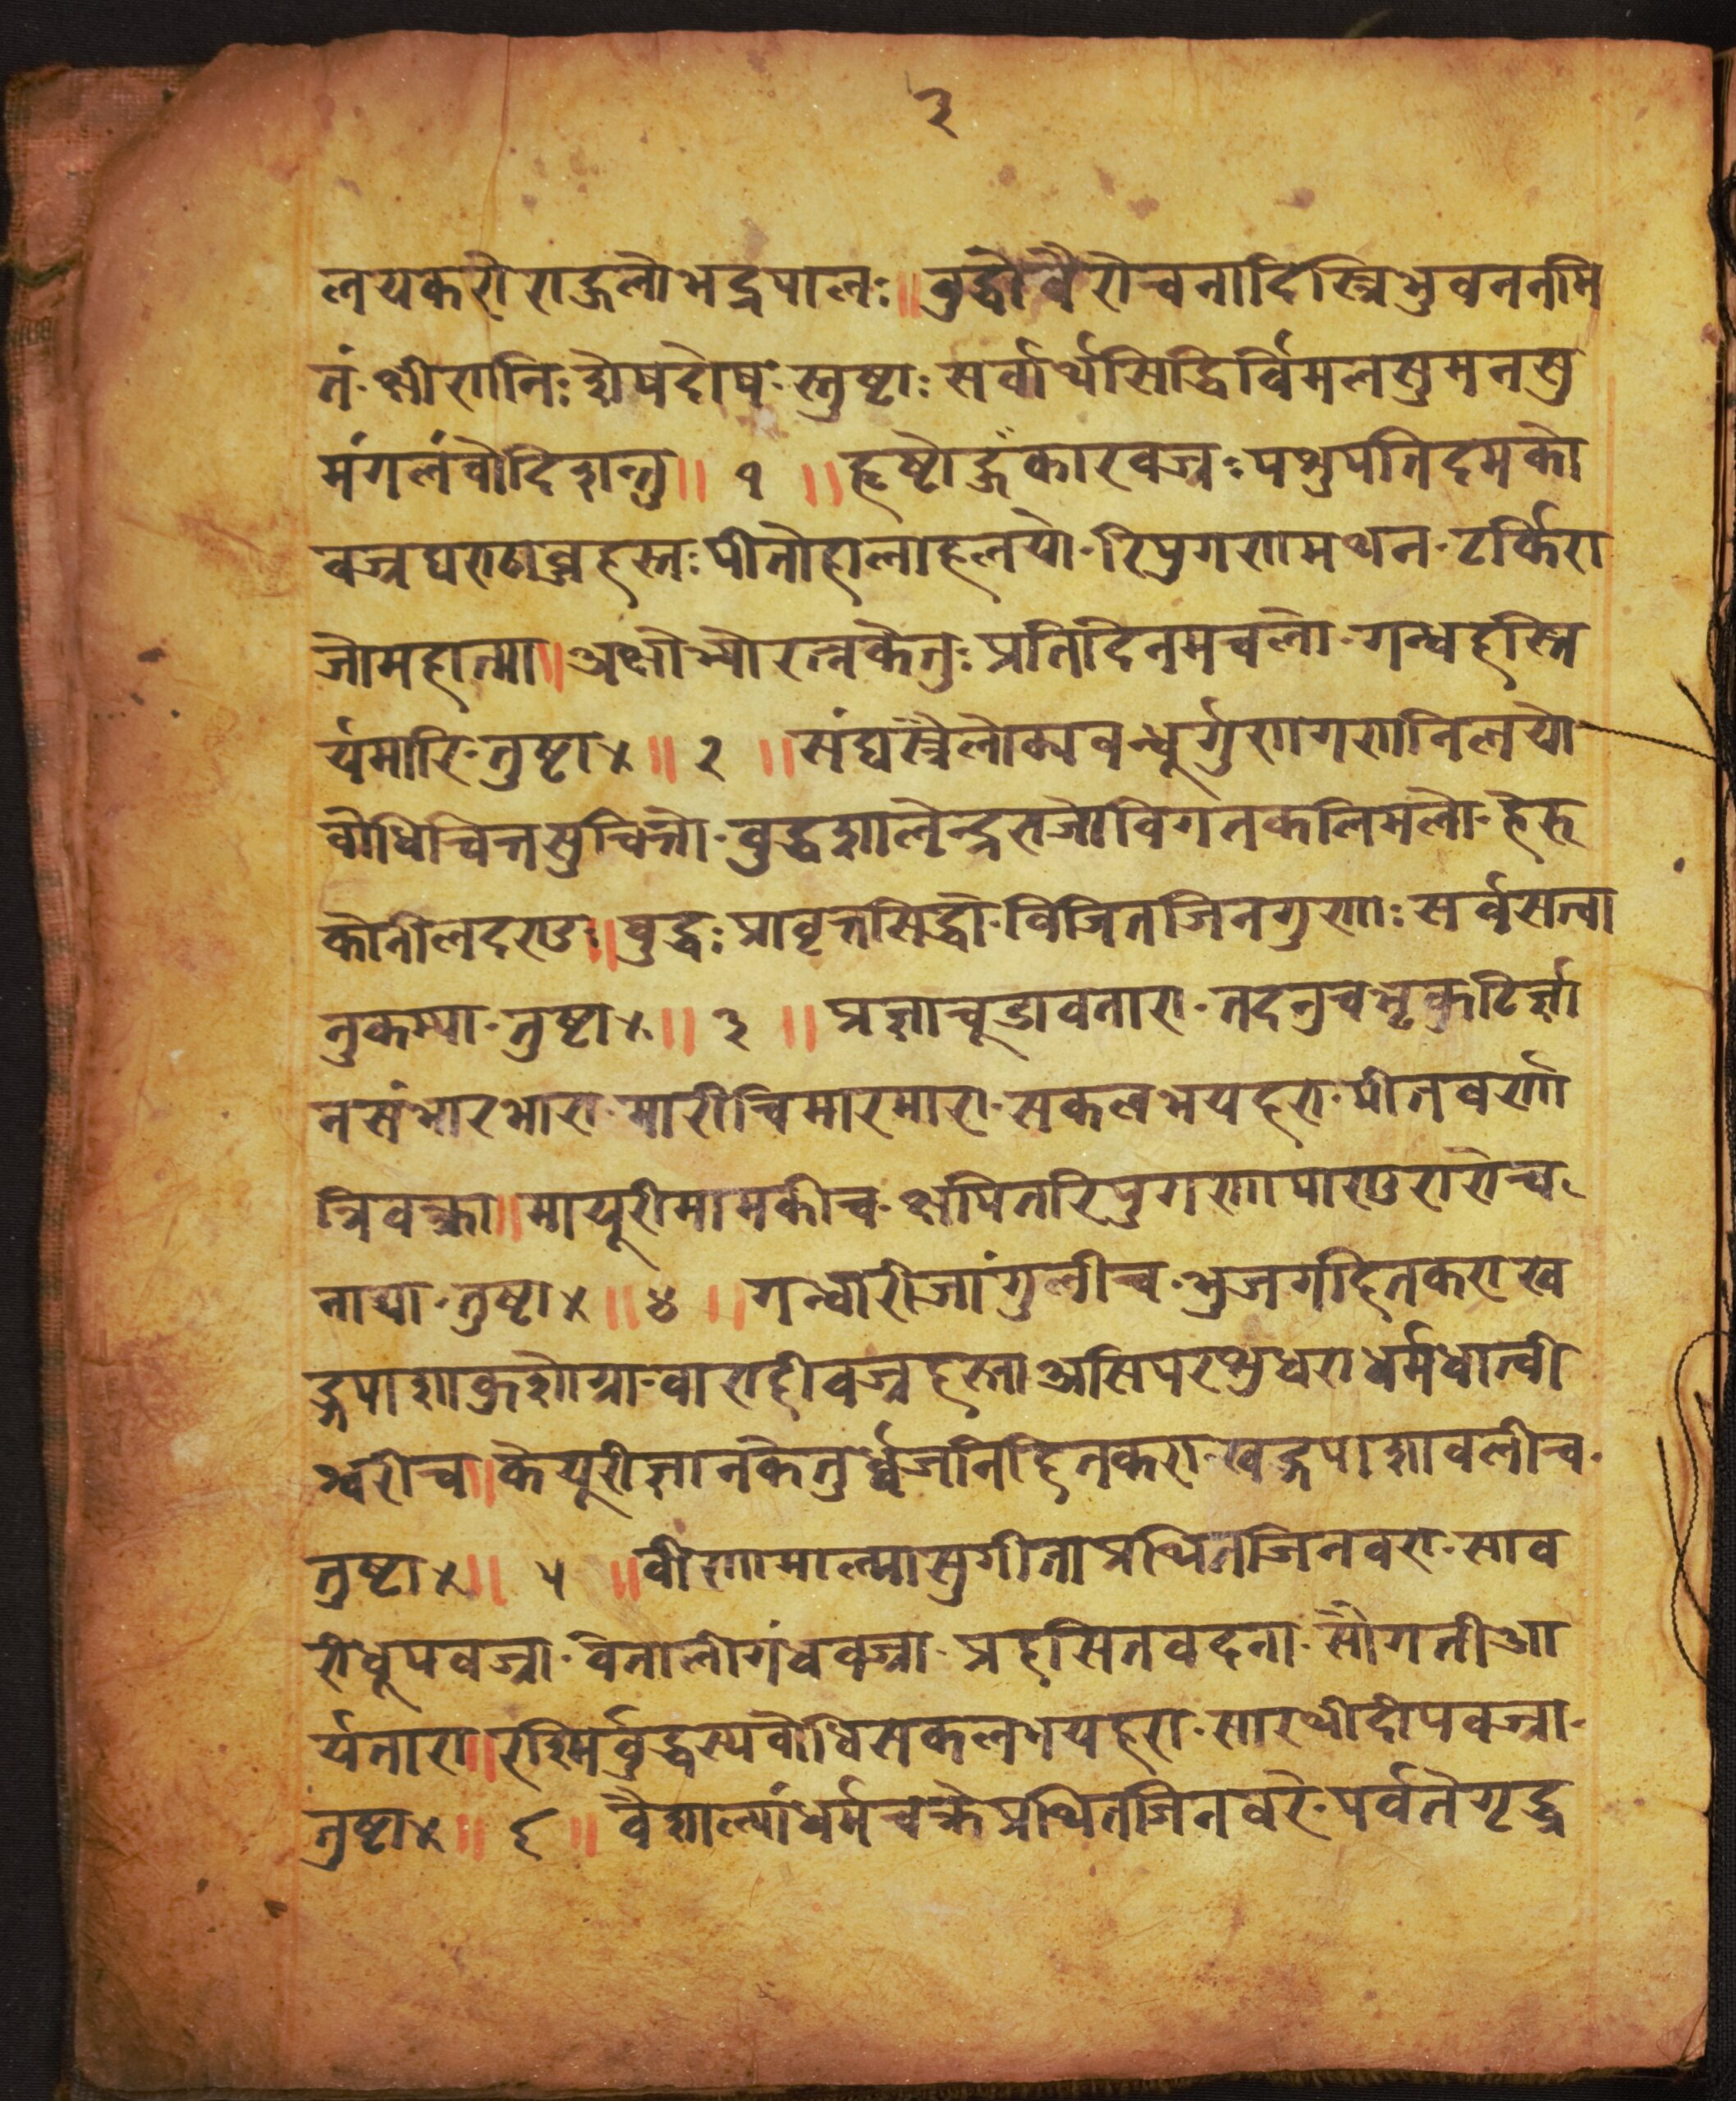 ३
लयकरोराहुलोभद्रपालः॥बुद्धोवैरोचनादिस्त्रिभुवननमि
तं-क्षीणनिःशेषदोष-स्तुष्टाःसर्वार्थसिद्धिर्विमलसुमनसु
मंगलंवोदिशन्तु॥ १ ॥हृष्टोहूँकारवज्रःपशुपतिदमको
वज्रघण्टाब्जहस्तःपीतोहालाहलयो-रिपुगणमथन-टर्किरा
जोमहात्मा॥अक्षोभ्योरत्नकेतुःप्रतिदिनमचलो-गन्धहस्ति
र्यमारि-तुष्टा४॥ २ ॥संघस्त्रैलोक्यवन्धूर्गुणगणनिलयो
वोधिचित्तसुचित्तो-बुद्धशालेन्द्रराजोविगतकलिमलो-हेरु
कोनीलदण्डः॥बुद्धःप्रावृत्तसिद्धो-विजितजिनगुणःसर्वसत्वा
नुकम्पा-तुष्टा४॥ ३ ॥प्रज्ञाचूडावतारा-तदनुचभृकुटिर्ज्ञा
नसंभारभारा-मारीचिमारमारा-सकलभयहरा-पीतवर्णा
त्रिवक्त्रा॥मायूरीमामकीच-क्षपितरिपुगणापाण्डुरारोच
नाद्या-तुष्टा४॥ ४ ॥गन्धारीजांगुलीच-भुजगहितकराख
ड्गपाशाकुशोग्रा-वाराहीवज्रहस्ताअसिपरशुधराधर्मधात्वी
श्वरीच॥केयूरीज्ञानकेतुर्ध्वजनिहितकरा-खड्गपाशावलीच-
तुष्टा४॥ ५ ॥वीणामाल्यासुगीताप्रथितजिनवरा-साव
रीधूपवज्रा-वेतालीगंधवज्रा-प्रहसितवदना-सौगतीआ
र्यतारा॥रश्मिर्बुद्धस्यवोधिसकलभयहरा-सारथीदीपवज्रा-
तुष्टा४॥ ६ ॥वैशाल्यांधर्मचक्रेप्रथितजिनवरे-पर्वतेगृद्ध्र